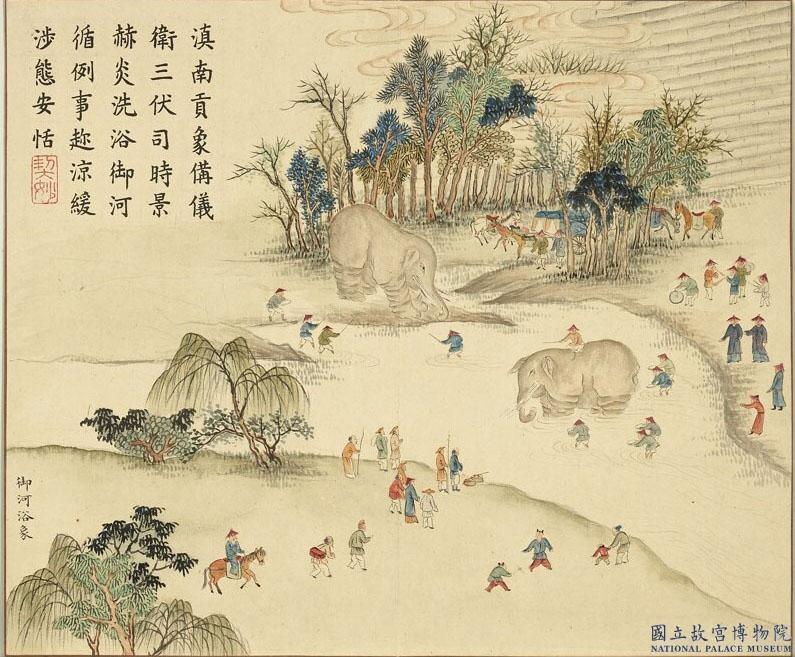 滇南貢象備儀
衛三伏司時景
赫炎洗浴御河
循例事趂涼緩
涉態安恬
契妙
御河浴象
國立故宮博物院
NATIONAL PALACE MUSEUM